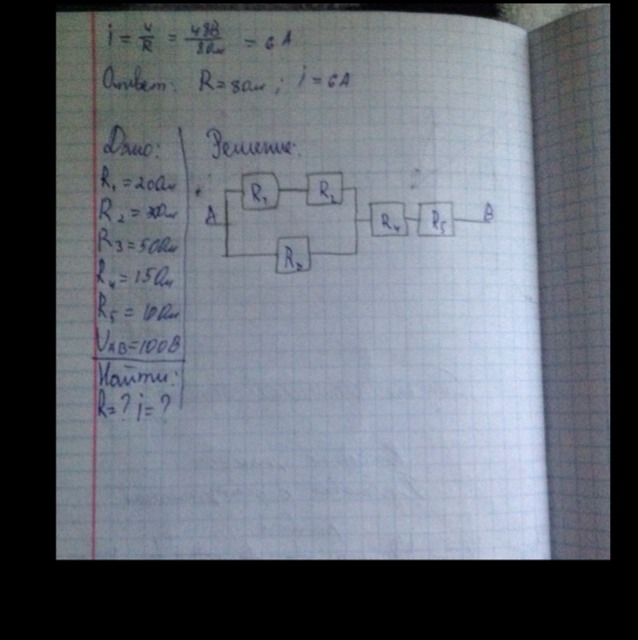 i = U/R = 48В/8Ом = 6 А
Ответ: R = 8 Ом ; i = 6 А
Дано:
R1 = 20 Ом
R2 = 30 Ом
R3 = 50 Ом
R4 = 15 Ом
R5 = 10 Ом
UAB = 100 В
Найти:
R = ? i = ?
Решение:
R1 R2
A R4 R5 B
R3